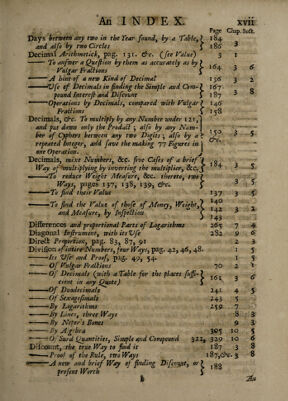 An INDEX. xvii
Page Chap. Sect.
Days between any two in the Year found, by a Table, and also by two Circles } 184 3
Decimal Arithmetick, pag. 131. &c. (see Value) 3 1
—— To answer a Question by them as accurately as by Vulgar Fractions } 164 3 6
—— A hint of a new Kind of Decimal 136 3 2
—— Use of Decimals in finding the Simple and Compound Interest and Discount { 167 187 3 8
—— Operations by Decimals, compared with Vulgar Fractions { 146 158
Decimals, &c. To multiply by any Number under 121, and put down only the Product; also by any Number of Cyphers between any two Digits; also by a repeated Integer, and save the making 77 Figures in one Operation. } 150 &c. 3 5
Decimals, mixt Numbers, &c. five Cases of a brief Way of multiplying by inverting the multiplier, &c. } 184 3 5
—— To reduce Weight Measure, &c. thereto, two Ways, pages 137, 138, 139, &c. } 3 5
—— To find their Value 137 3 2
—— To find the Value of those of Money, Weight, and Measure, by Inspection { 140 142 143 3 2
Differences and proportional Parts of Logarithms 265 7 4
Diagonal Instrument, with its Use 282 9 6
Direct Proportion, pag. 83, 87, 91 2 3
Division of intire Numbers, four Ways, pag. 42, 46, 48. 1 5
—— Its Use and Proof, pag. 49, 54. 1 5
—— Of Vulgar Fractions 70 2 5
—— Of Decimals (with a Table for the places sufficient in any Quote) } 161 3 6
—— Of Duodecimals 241 4 5
—— Of Sexagesimals 243 5 2
—— By Logarithms 259 7 2
—— By Lines, three Ways 8 3
—— By Neper's Bones 9 3
—— By Algebra 305 10 5
—— Of Surd Quantities, Simple and Compound 322, 329 10 6
Discount, the true Way to find it 187 3 8
—— Proof of the Rule, two Ways 187, &c. 3 8
—— A new and brief Way of finding Discount, or present Worth } 188
b An